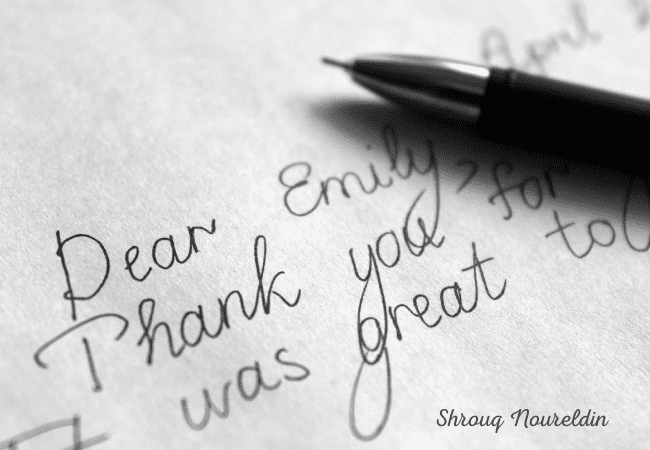 April
Dear Emily,
Thank you for
was great to
Shrouq Noureldin